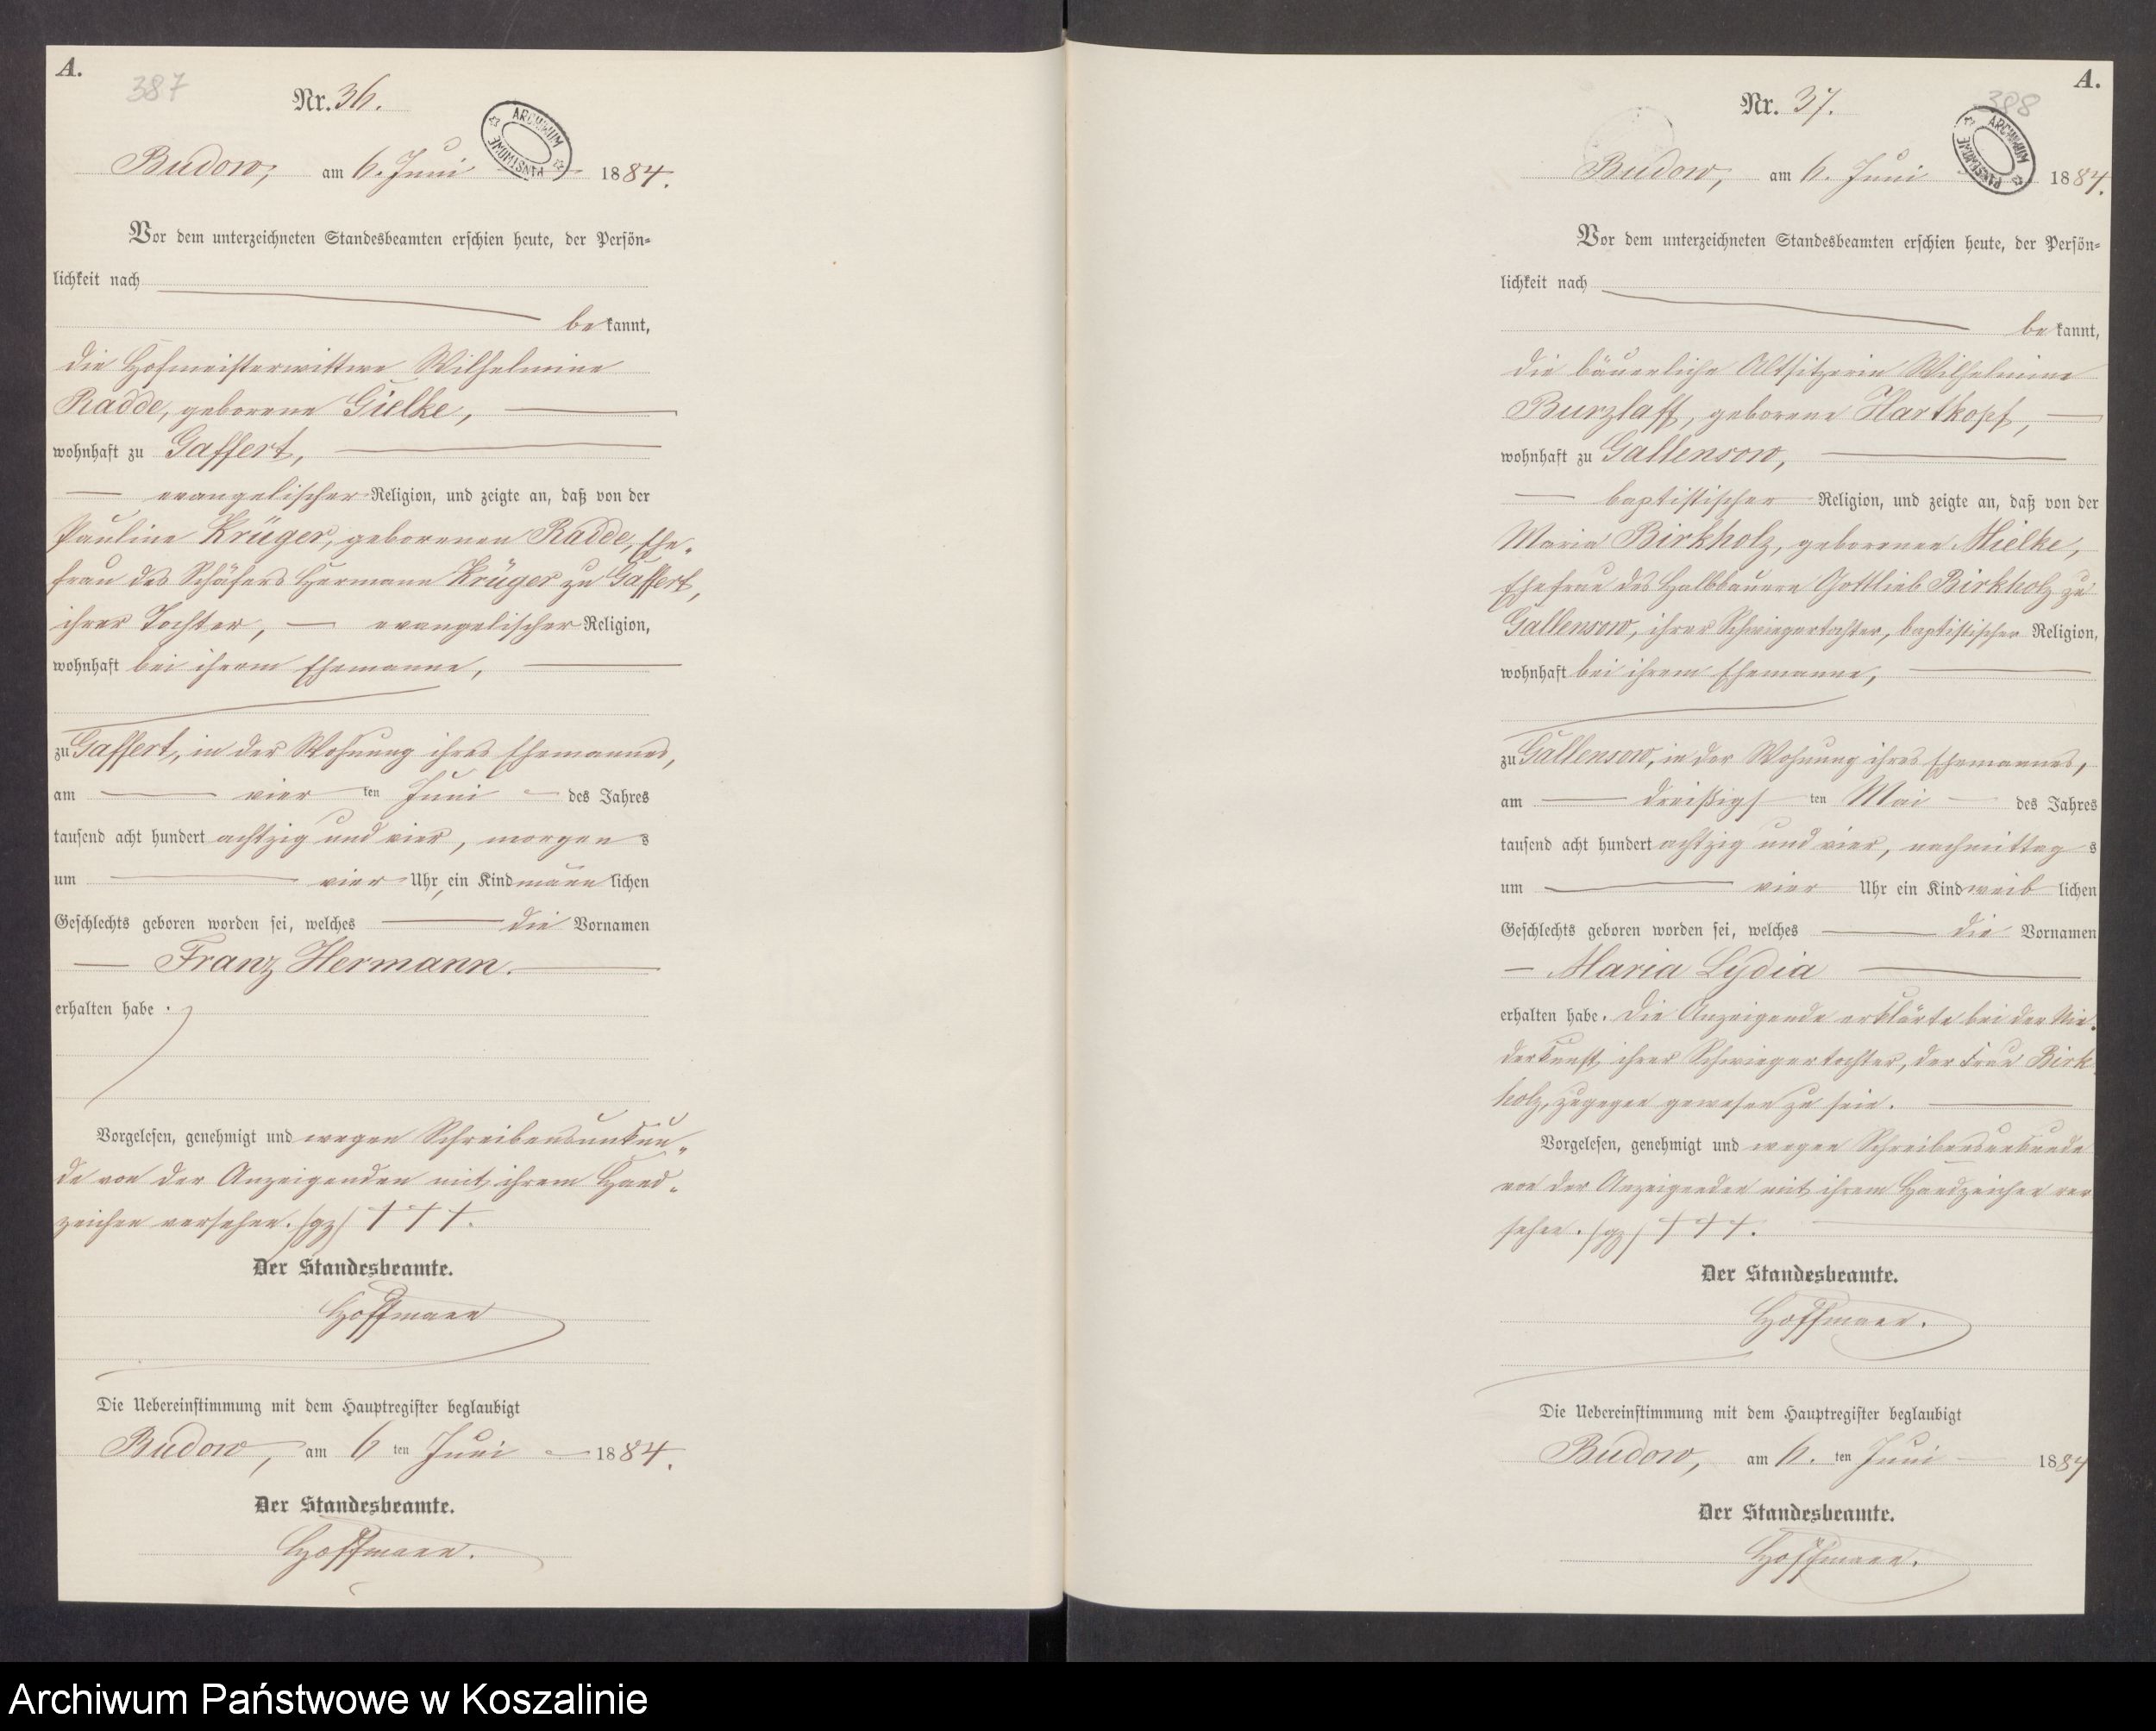 A.
387
Nr. 36.
ARCHIWUM PAŃSTWOWE
Budow, am 6. Juni 1884.
Vor dem unterzeichneten Standesbeamten erschien heute, der Persön=
lichkeit nach
be kannt,
die Hofmeisterwittwe Wilhelmine
Radde, geborene Gielke,
wohnhaft zu Gaffert,
evangelischer Religion, und zeigte an, daß von der
Pauline Krüger, geborenen Radde, Ehe-
frau des Schäfers Hermann Krüger zu Gaffert,
ihrer Tochter, evangelischer Religion,
wohnhaft bei ihrem Ehemanne,
zu Gaffert, in der Wohnung ihres Ehemannes,
am vier ten Juni des Jahres
tausend acht hundert achtzig und vier, morgen s
um vier Uhr, ein Kind männ lichen
Geschlechts geboren worden sei, welches die Vornamen
Franz Hermann.
erhalten habe.
Vorgelesen, genehmigt und wegen Schreibensunkun-
de von der Anzeigenden mit ihrem Hand-
zeichen versehen. (gz) +++.
Der Standesbeamte.
Hoffmann
Die Uebereinstimmung mit dem Hauptregister beglaubigt
Budow, am 6 ten Juni 1884.
Der Standesbeamte.
Hoffmann.
A.
388
Nr. 37.
ARCHIWUM PAŃSTWOWE
Budow, am 6. Juni 1884.
Vor dem unterzeichneten Standesbeamten erschien heute, der Persön=
lichkeit nach
be kannt,
die bäuerliche Altsitzerin Wilhelmine
Burzlaff, geborene Hartkopf,
wohnhaft zu Gallensow,
baptistischer Religion, und zeigte an, daß von der
Maria Birkholz, geborenen Mielke,
Ehefrau des Halbbauern Gottlieb Birkholz zu
Gallensow, ihrer Schwiegertochter, baptistischer Religion,
wohnhaft bei ihrem Ehemanne,
zu Gallensow, in der Wohnung ihres Ehemannes,
am dreißigs ten Mai des Jahres
tausend acht hundert achtzig und vier, nachmittag s
um vier Uhr ein Kind weib lichen
Geschlechts geboren worden sei, welches die Vornamen
Maria Lydia
erhalten habe. Die Anzeigende erklärte bei der Nie-
derkunft ihrer Schwiegertochter, der Frau Birk
holz, zugegen gewesen zu sein.
Vorgelesen, genehmigt und wegen Schreibensunkunde
von der Anzeigenden mit ihrem Handzeichen ver
sehen. (gz) +++.
Der Standesbeamte.
Hoffmann.
Die Uebereinstimmung mit dem Hauptregister beglaubigt
Budow, am 6. ten Juni 1884
Der Standesbeamte.
Hoffmann.
Archiwum Państwowe w Koszalinie